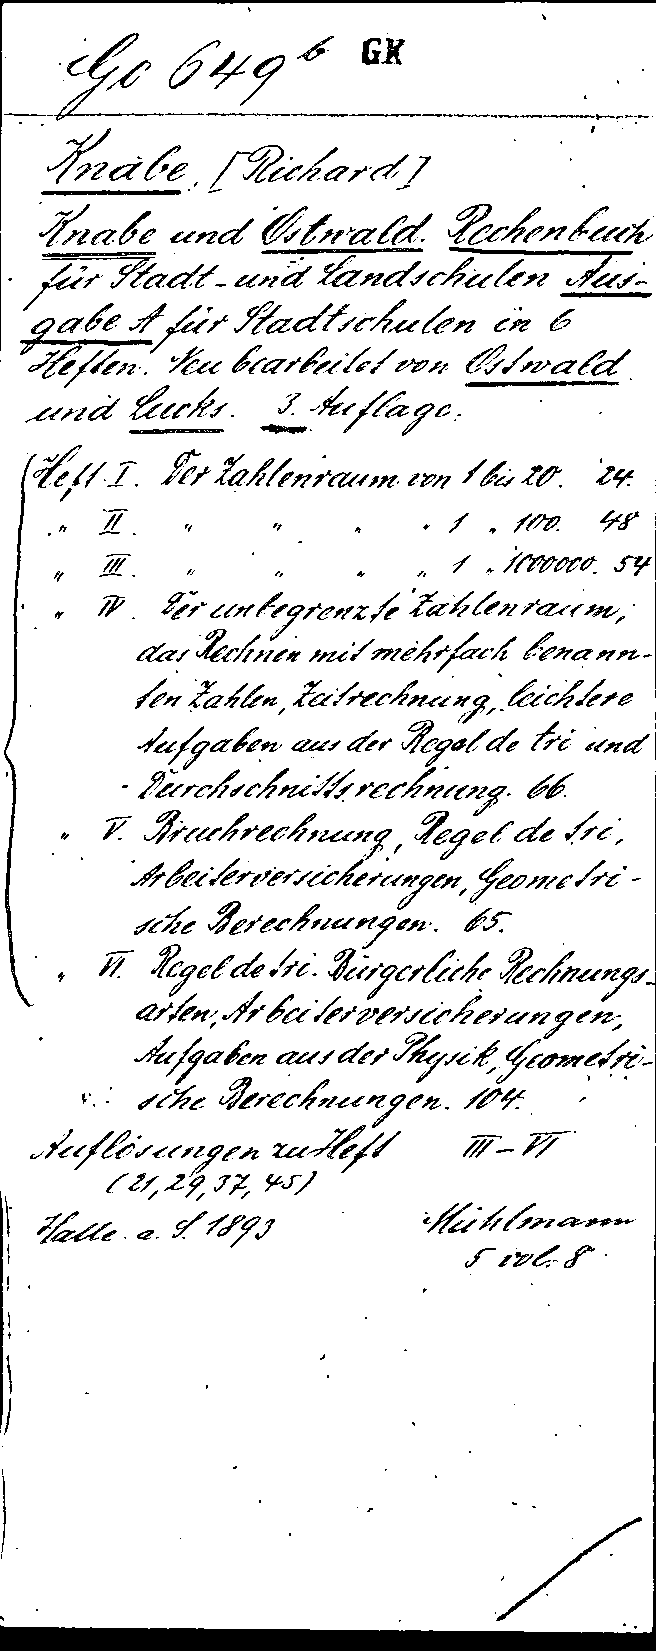 Gc 649 b GK
Knabe, [Richard]
Knabe und Ostwald. Rechenbuch
für Stadt- und Landschulen Aus-
gabe A für Stadtschulen in 6
Heften. Neu bearbeitet von Ostwald
und Lucks. 3. Auflage.
Heft I. Der Zahlenraum von 1 bis 20. 24.
" II. " " " " 1 " 100. 48
" III. " " " " 1 " 1000000. 54
" IV. Der unbegrenzte Zahlenraum,
das Rechnen mit mehrfach benann-
ten Zahlen, Zeitrechnung, leichtere
Aufgaben aus der Regel de tri und
Durchschnittsrechnung. 66.
" V. Bruchrechnung, Regel de tri,
Arbeiterversicherungen, Geometri-
sche Berechnungen. 65.
" VI. Regel de tri. Bürgerliche Rechnungs-
arten, Arbeiterversicherungen,
Aufgaben aus der Physik, Geometri-
sche Berechnungen. 104.
Auflösungen zu Heft III-VI
(21, 29, 37, 45)
Halle a. S. 1893 Mühlmann
5 vol. 8